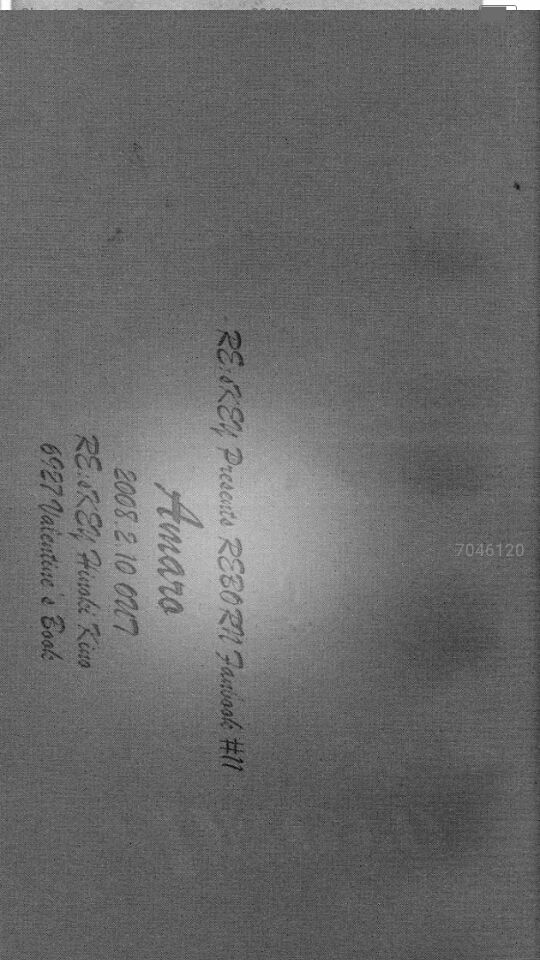 RE:SKEY Presents REBORN Fanbook #11
Amaro
2008.2.10 OUT
RE:SKEY Hiroki Kino
6927 Valentine's Book
7046120